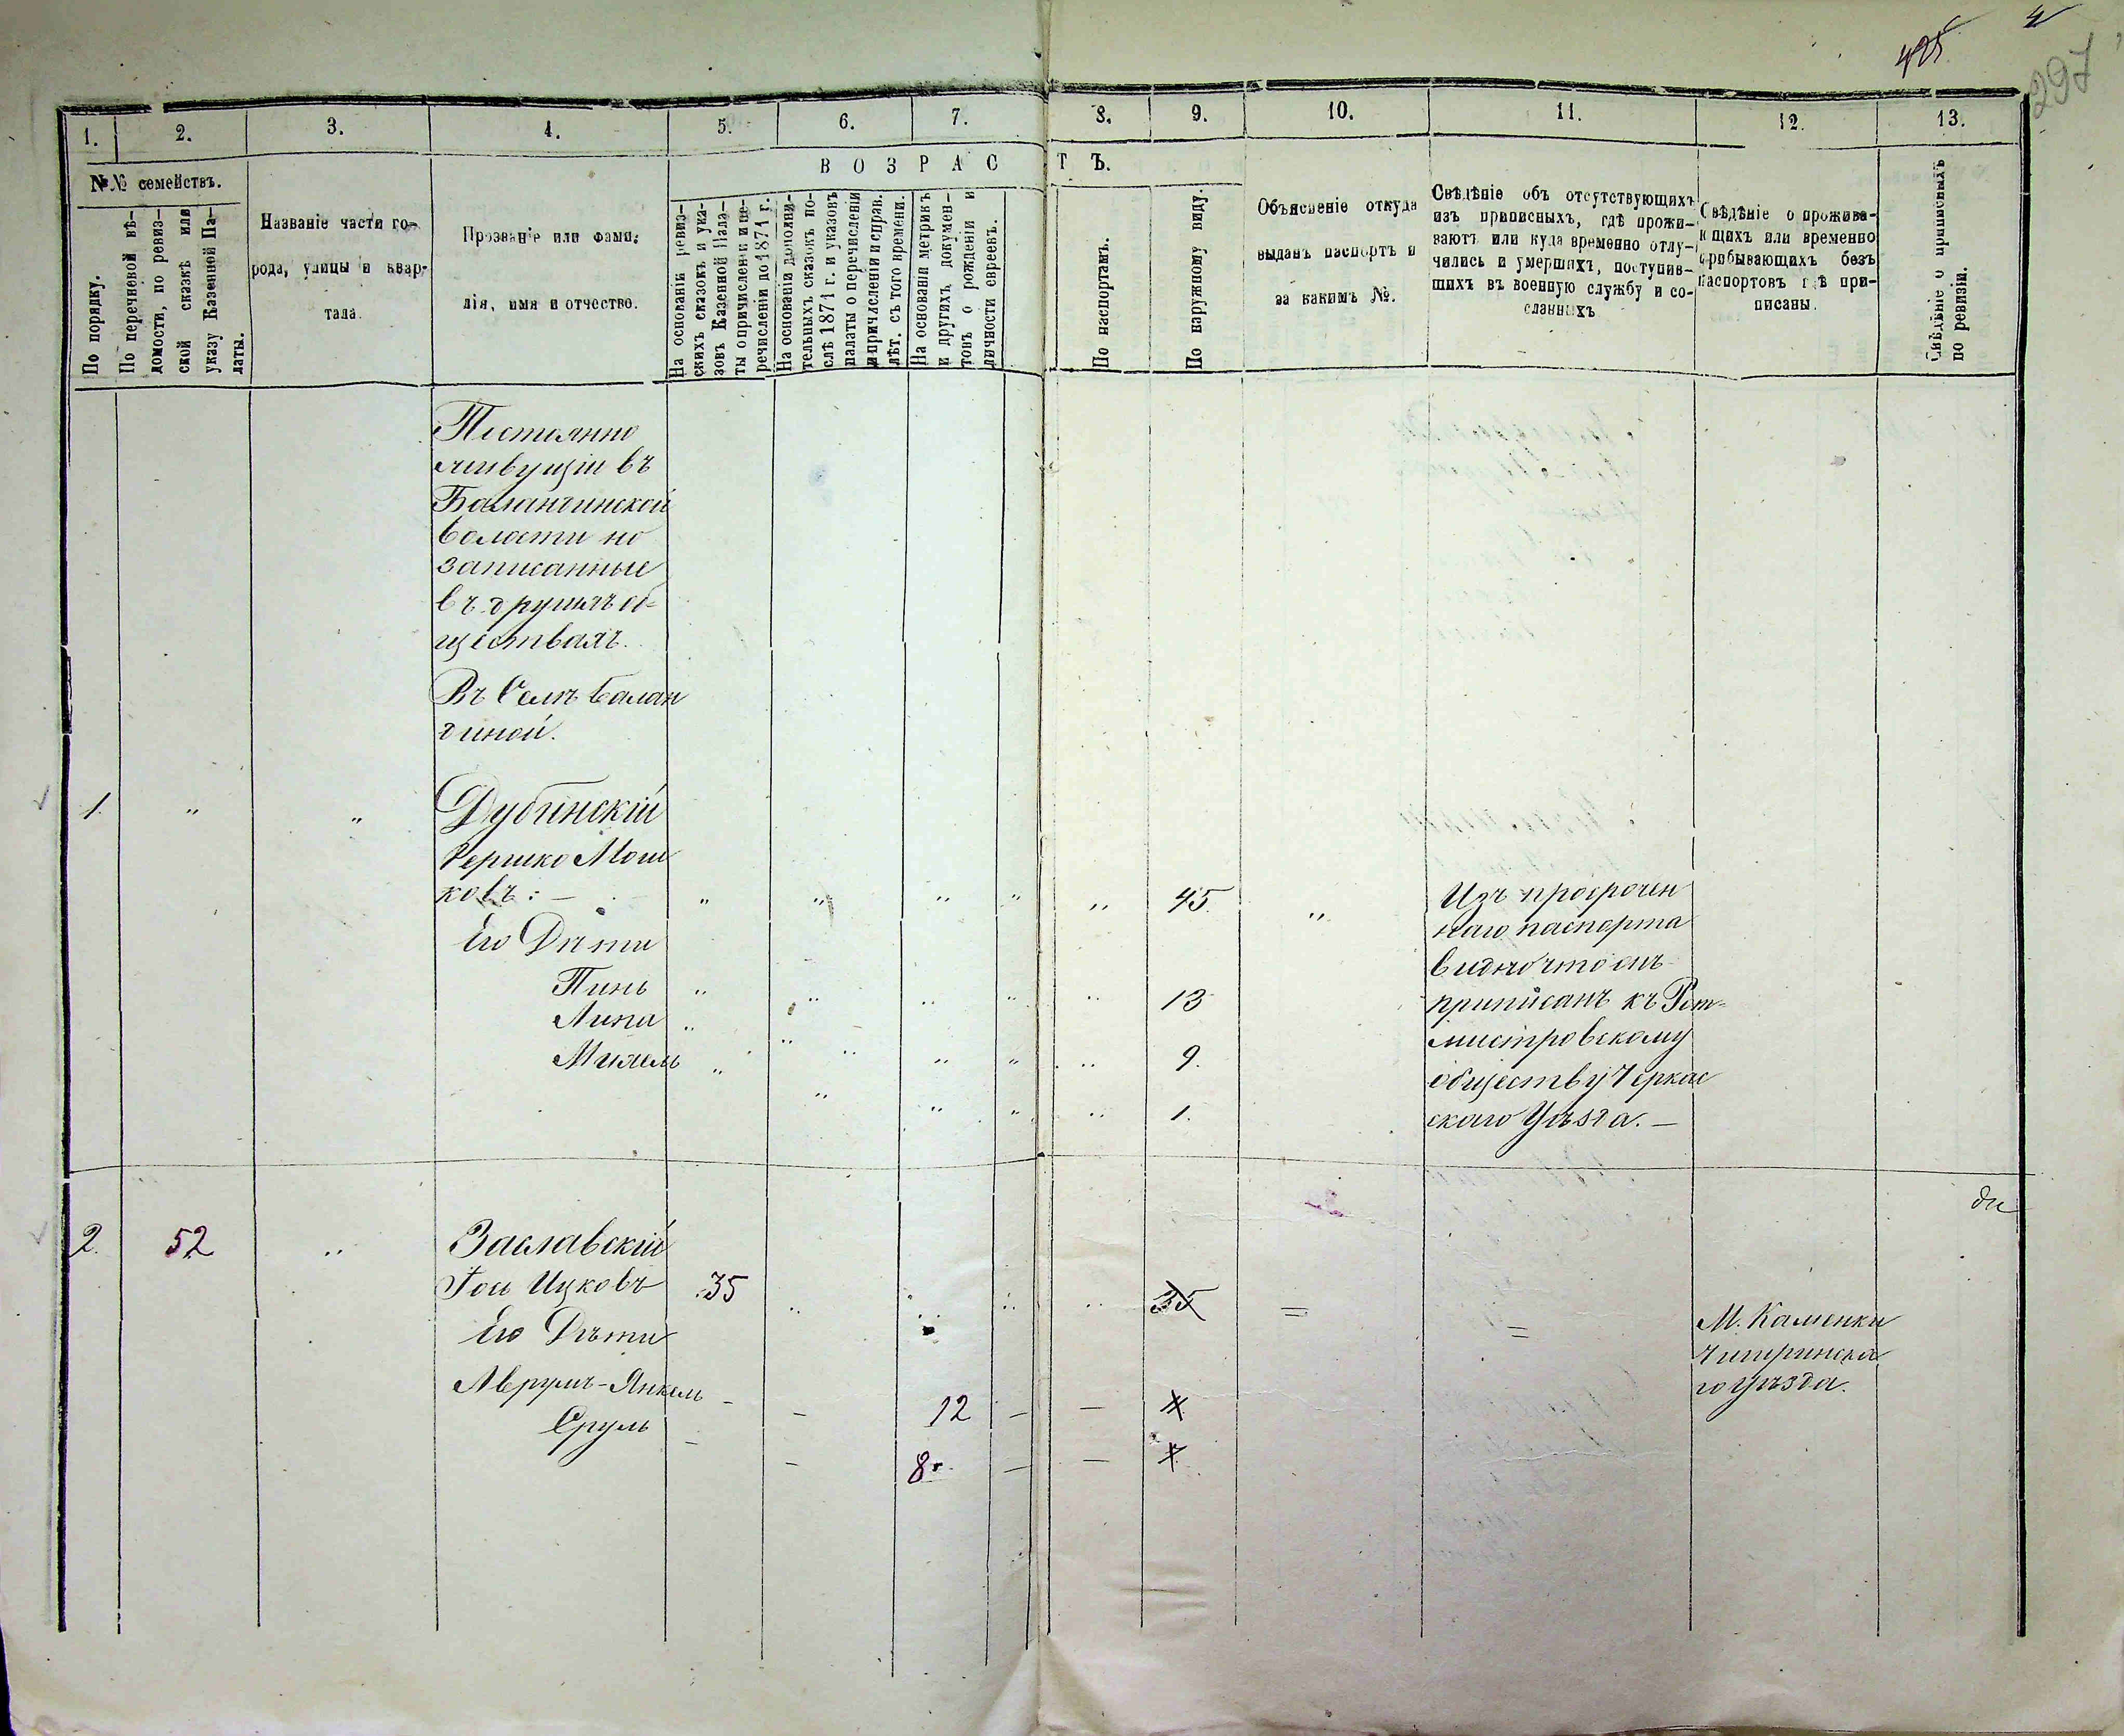 425
4
297
1.
2.
3.
4.
5.
6.
7.
8.
9.
10.
11.
12.
13.
№№ семействъ.
В О З Р А С Т Ъ.
По порядку.
По перечневой вѣ-
домости, по ревиз-
ской сказкѣ или
указу Казенной Па-
латы.
Названіе части го-
рода, улицы и квар-
тала.
Прозваніе или фами-
лія, имя и отчество.
На основаніи ревиз-
скихъ сказокъ и ука-
зовъ Казенной Пала-
ты о причисленіи и пе-
речисленіи до 1871 г.
На основаніи дополни-
тельныхъ сказокъ по-
слѣ 1871 г. и указовъ
палаты о перечисленіи
и причисленіи и справ.
лѣт. съ того времени.
На основаніи метрикъ
и другихъ, докумен-
товъ о рожденіи и
личности евреевъ.
По паспортамъ.
По наружному виду.
Объясненіе откуда
выданъ паспортъ и
за какимъ №.
Свѣдѣніе объ отсутствующихъ
изъ приписныхъ, гдѣ прожи-
ваютъ или куда временно отлу-
чились и умершихъ, поступив-
шихъ въ военную службу и со-
сланныхъ
Свѣдѣніе о прожива-
ющихъ или временно
прибывающихъ безъ
паспортовъ гдѣ при-
писаны.
Свѣдѣніе о приписныхъ
по ревизіи.
Постоянно
живущіи въ
Баландинской
волости но
записанные
въ другихъ об-
ществахъ.
Въ Селѣ Балан
диной.
1. " " Дубинскій
Гершко Мош
ковъ: — " " " " " 45 "
Его Дѣти
Пинь " " " " " 13
Липа " " " " " 9.
Михель " " " " " 1.
Изъ просрочен
наго паспорта
видно что онъ
приписанъ къ Рот-
мистровскому
обществу Черкас
скаго Уѣзда. —
2. 52 " Заславскій
Гои Ицковъ 35 " " " " 35 = =
Его Дѣти
Аврумъ-Янкель — — 12 — —
Сруль — — 8 — —
М. Каменки
Чигринска
го уѣзда.